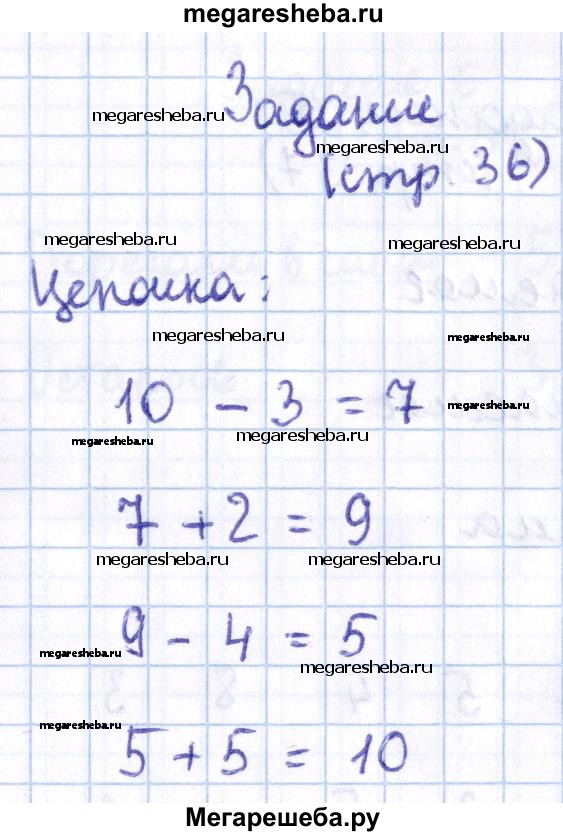 megaresheba.ru
Задание
megaresheba.ru
megaresheba.ru
(стр. 36)
megaresheba.ru
megaresheba.ru
Цепочка:
megaresheba.ru
megaresheba.ru
10 - 3 = 7
megaresheba.ru
megaresheba.ru
megaresheba.ru
7 + 2 = 9
megaresheba.ru
megaresheba.ru
9 - 4 = 5
megaresheba.ru
megaresheba.ru
megaresheba.ru
5 + 5 = 10
Мегарешеба.ру